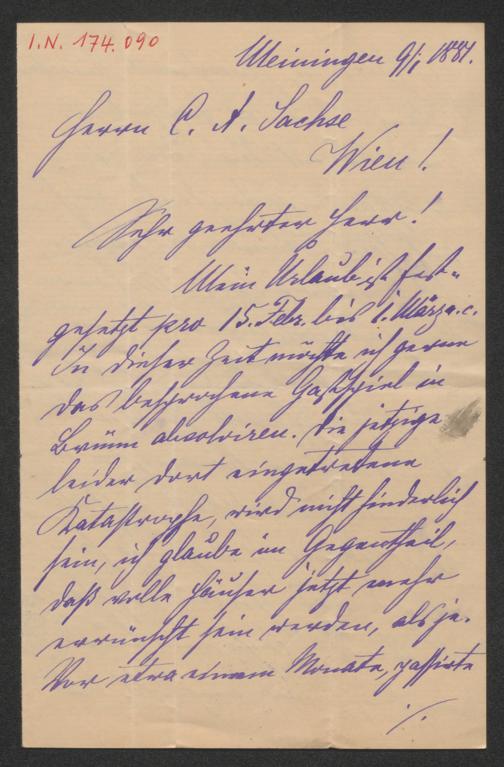 I.N. 174.090
Meiningen 9/I 1881.
Herrn C. A. Sachse
Wien!
Sehr geehrter Herr!
Mein Urlaub ist fest-
gesetzt pro 15. Febr. bis 1. März a. c.
In dieser Zeit möchte ich gerne
das besprochene Gastspiel in
Brünn absolviren. Die jetzige
leider dort eingetretene
Katastrophe, wird nicht hinderlich
sein, ich glaube im Gegentheil,
daß volle Häuser jetzt mehr
erwünscht sein werden, als je.
Vor etwa einem Monate, passirte
./.